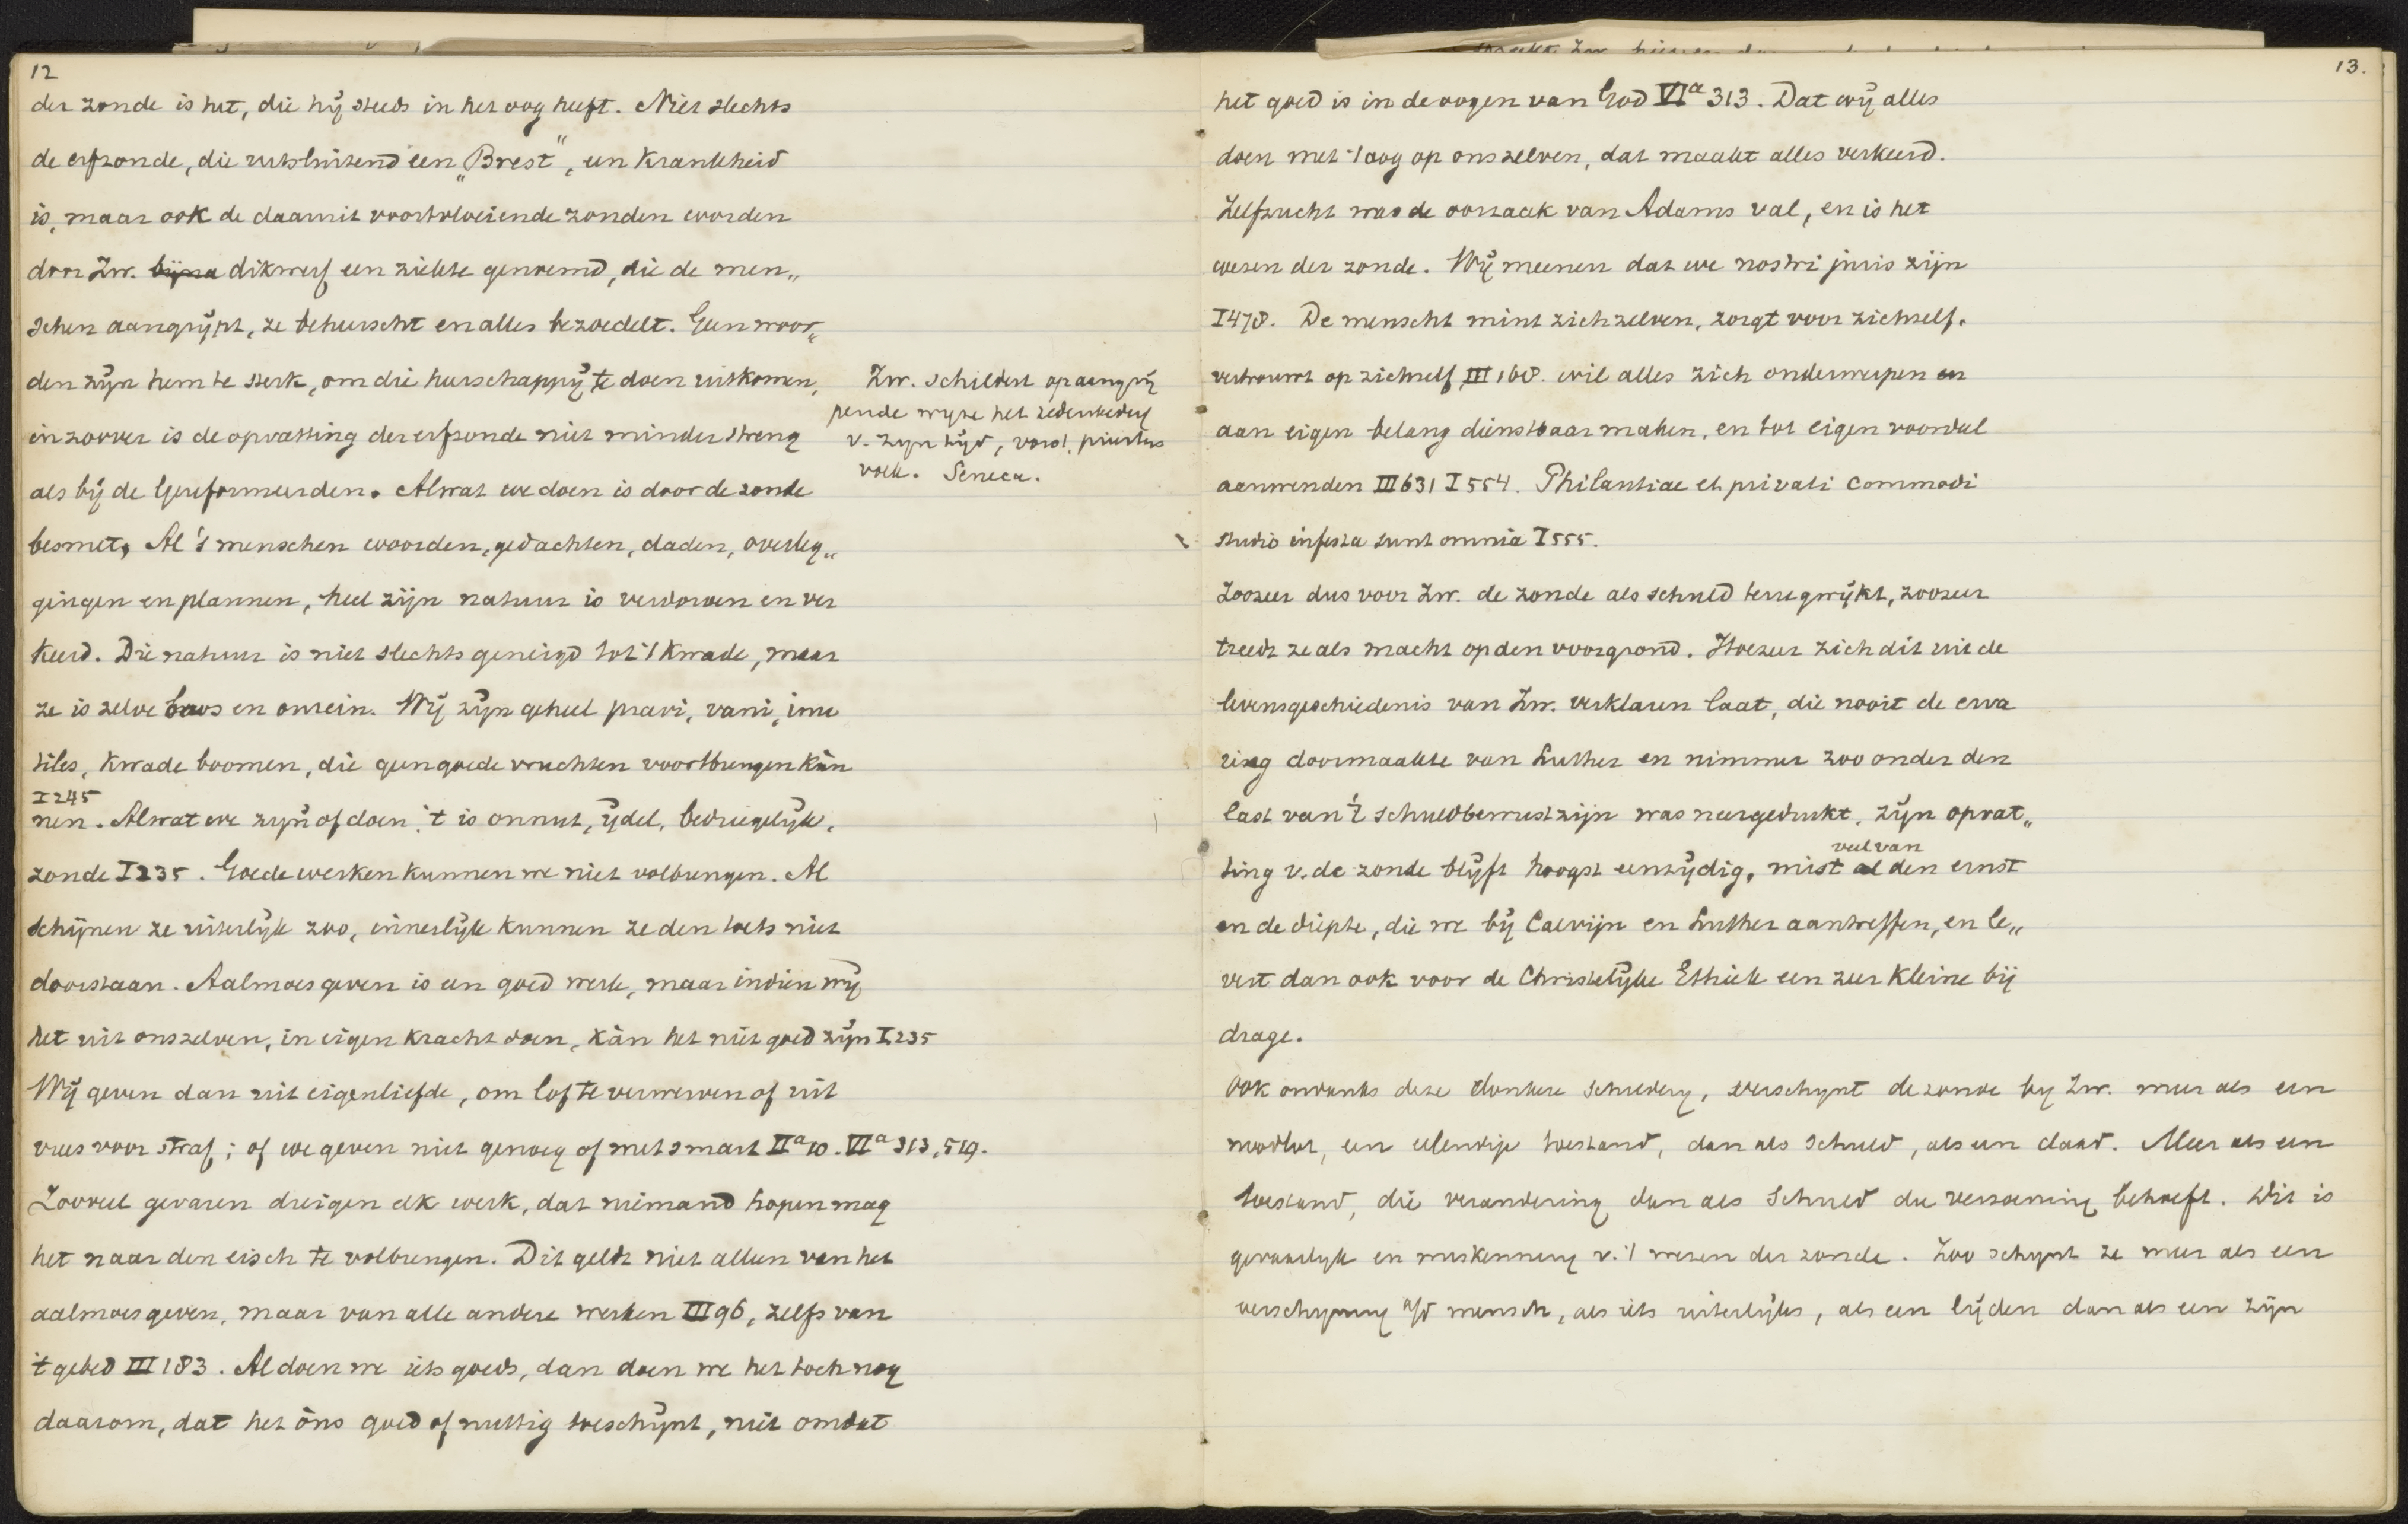 12
der zonde is het, die hij steeds in het oog heeft. Niet slechts
de erfzonde, die uitsluitend een „Brest", een Krankheid
is, maar ook de daaruit voortvloeiende zonden worden
door Zw. bijna dikwerf een ziekte genoemd, die de men„
schen aangrijpt, ze beheerscht en alles bezoedelt. Geen woor„
den zijn hem te sterk, om die heerschappij te doen uitkomen,
in zoover is de opvatting der erfzonde niet minder streng
als bij de Gereformeerden. Alwat we doen is door de zonde
besmet, Al 's menschen woorden, gedachten, daden, overleg„
gingen en plannen, heel zijn natuur is verdorven en ver
keerd. Die natuur is niet slechts geneigd tot 't kwade, maar
ze is zelve boos en onrein. Wij zijn geheel pravi, vani, inu
tiles, kwade boomen, die geen goede vruchten voortbrengen kùn
I 245
nen. Alwat we zijn of doen, 't is onnut, ijdel, bedriegelijk,
zonde I 235. Goede werken kunnen we niet volbrengen. Al
schijnen ze uiterlijk zoo, innerlijk kunnen ze den toets niet
doorstaan. Aalmoes geven is een goed werk, maar indien wij
het uit onszelven, in eigen kracht doen, kàn het niet goed zijn I 235
Wij geven dan uit eigenliefde, om lof te verwerven of uit
vrees voor straf; of we geven niet genoeg of met smart IIa 10. VIa 313, 519.
Zooveel gevaren dreigen elk werk, dat niemand hopen mag
het naar den eisch te volbrengen. Dit geldt niet alleen van het
aalmoes geven, maar van alle andere werken III 96, zelfs van
't gebed III 183. Al doen we iets goeds, dan doen we het toch nog
daarom, dat het òns goed of nuttig toeschijnt, niet omdat
Zw. schildert op aangrij
pende wijze het zedenbederf
v. zijn tijd, vorst, priesters
volk. Seneca.
13.
het goed is in de oogen van God VIa 313. Dat wij alles
doen met 't oog op onszelven, dat maakt alles verkeerd.
Zelfzucht was de oorzaak van Adams val, en is het
wezen der zonde. Wij meenen dat we nostri juris zijn
I 478. De mensch mint zichzelven, zorgt voor zichzelf.
vertrouwt op zichzelf III 168. wil alles zich onderwerpen en
aan eigen belang dienstbaar maken, en tot eigen voordeel
aanwenden III 631 I 554. Philautiae et privati commodi
studio infesta sunt omnia I 555.
Zoozeer dus voor Zw. de zonde als schuld terugwijkt, zoozeer
treedt ze als macht op den voorgrond. Hoezeer zich dit uit de
levensgeschiedenis van Zw. verklaren laat, die nooit de erva
ring doormaakte van Luther en nimmer zoo onder den
last van 't schuldbewustzijn was neergedrukt, zijn opvat„
veel van
ting v. de zonde blijft hoogst eenzijdig, mist al den ernst
en de diepte, die we bij Calvijn en Luther aantreffen, en le„
vert dan ook voor de Christelijke Ethiek een zeer kleine bij
drage.
Ook ondanks deze donkere schildery, verschynt de zonde by Zw. meer als een
noodlot, een ellendige toestand, dan als schuld, als een daad. Meer als een
toestand, die verandering dan als schuld die verzoening behoeft. Dit is
gevaarlyk en miskenning v. 't wezen der zonde. Zoo schynt ze meer als een
verschyning a/d mensch, als iets uiterlijks, als een lijden dan als een zijn